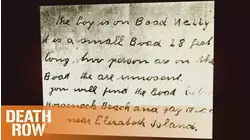 the Coy is on Boad Nelly
it is a small Boad 28 feet
long, two person are on the
Boad the are innosent.
you will find the Boad
Horseneck Beach and gay
near Elizabeth Island,
DEATH
ROW